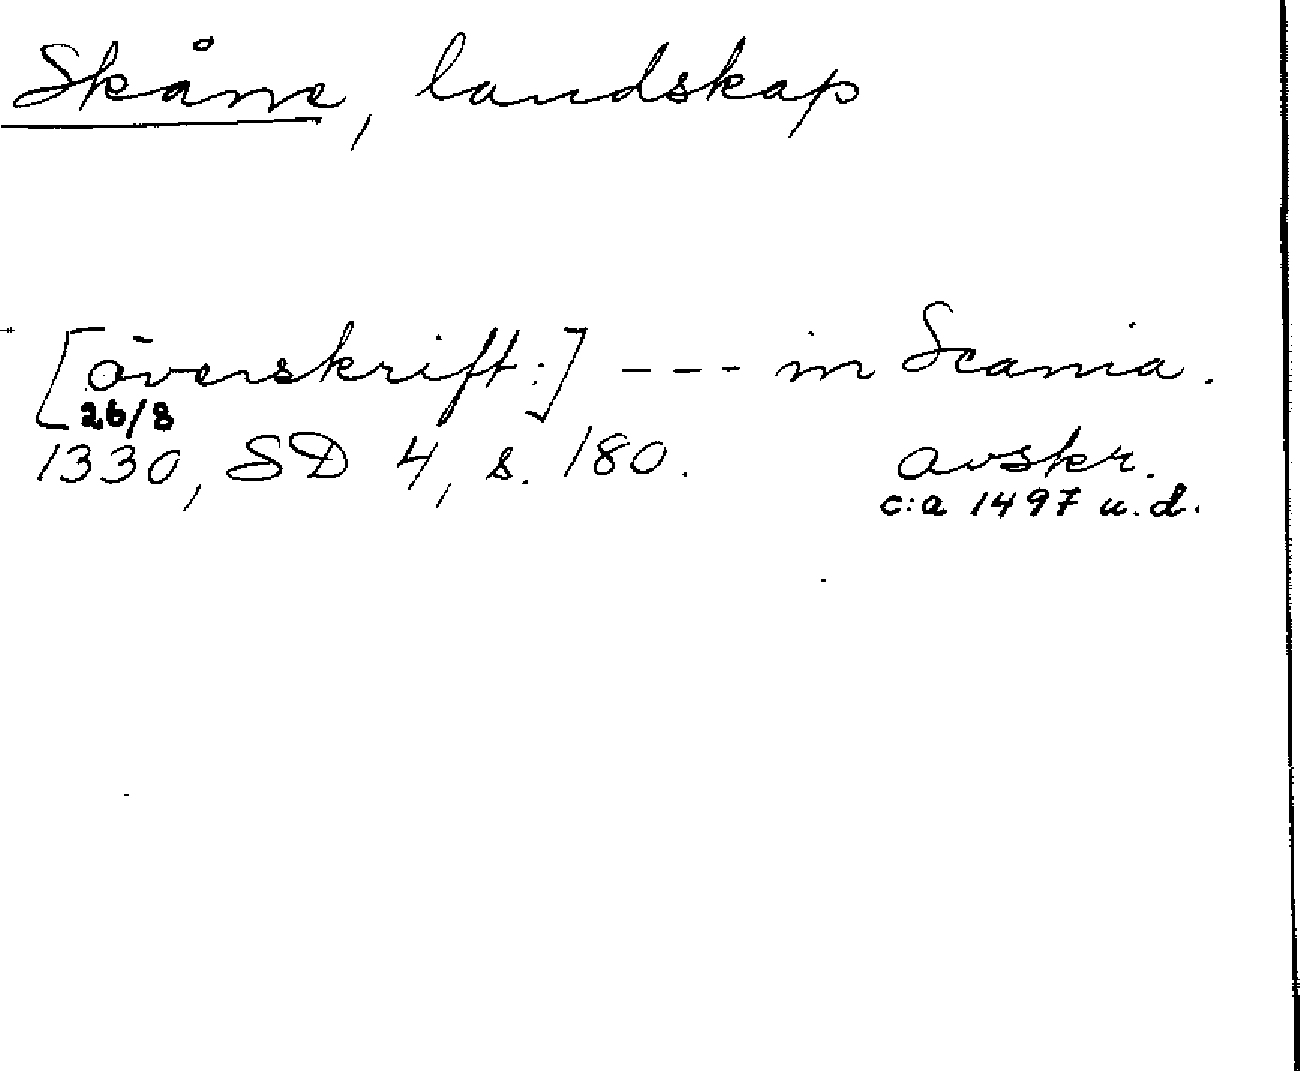 Skåne, landskap
[överskrift:] --- in Scania.
26/8
1330, SD 4, s. 180. avskr.
c:a 1497 u.d.